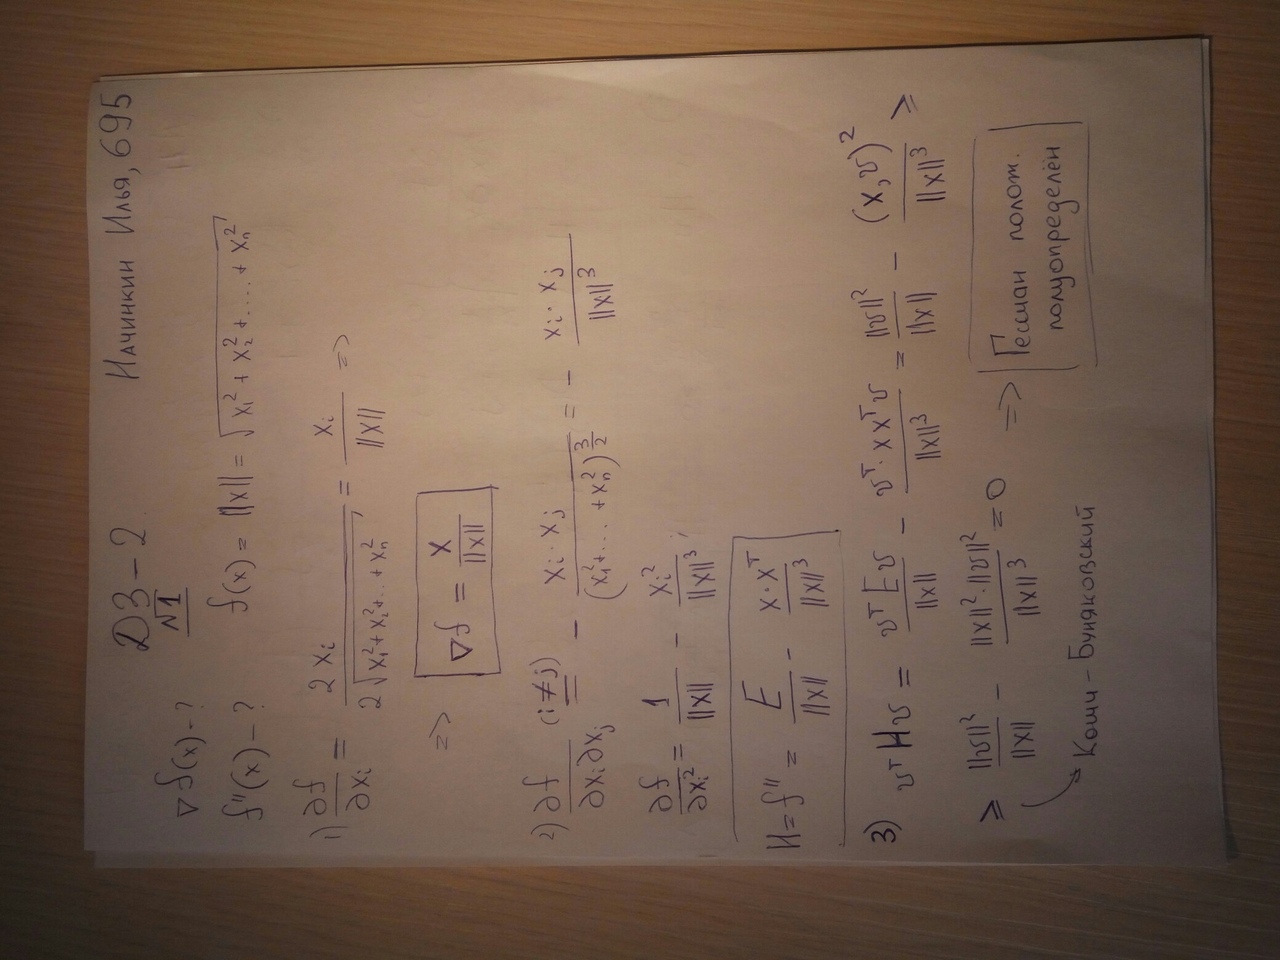 ДЗ-2 Начинкин Илья, 695
N1
∇f(x)-? f(x) = ||x|| = √(x₁² + x₂² + .... + xₙ²)
f''(x)-?
1) ∂f/∂xᵢ = 2xᵢ / 2√(x₁²+x₂²+...+xₙ²) = xᵢ/||x|| =>
=> ∇f = x/||x||
2) ∂f/∂xᵢ∂xⱼ (i≠j) = - xᵢ·xⱼ/(x₁²+...+xₙ²)^(3/2) = - xᵢ·xⱼ/||x||³
∂f/∂xᵢ² = 1/||x|| - xᵢ²/||x||³;
H = f'' = E/||x|| - x·xᵀ/||x||³
3) vᵀHv = vᵀEv/||x|| - vᵀ·xxᵀv/||x||³ = ||v||²/||x|| - (x,v)²/||x||³ ≥
≥ ||v||²/||x|| - ||x||²·||v||²/||x||³ = 0 => Гессиан полож.
полуопределён
Коши-Буняковский